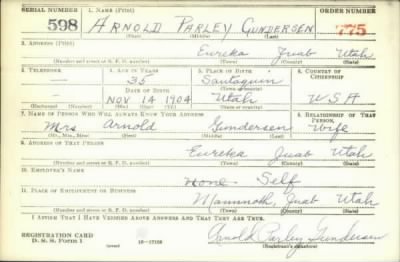 SERIAL NUMBER 1. NAME (Print) ORDER NUMBER
598 ARNOLD PARLEY GUNDERSEN 775
(First) (Middle) (Last)
2. ADDRESS (Print)
Eureka Juab Utah
(Number and street or R. F. D. number) (Town) (County) (State)
3. TELEPHONE 4. AGE IN YEARS 5. PLACE OF BIRTH 6. COUNTRY OF CITIZENSHIP
35 Santaquin
DATE OF BIRTH (Town or county)
— Nov 14 1904 Utah U S A
(Exchange) (Number) (Mo.) (Day) (Yr.) (State or country)
7. NAME OF PERSON WHO WILL ALWAYS KNOW YOUR ADDRESS 8. RELATIONSHIP OF THAT PERSON
Mrs Arnold Gundersen Wife
(Mr., Mrs., Miss) (First) (Middle) (Last)
9. ADDRESS OF THAT PERSON
Eureka Juab Utah
(Number and street or R. F. D. number) (Town) (County) (State)
10. EMPLOYER'S NAME
None - Self
11. PLACE OF EMPLOYMENT OR BUSINESS
Mammoth, Juab Utah
(Number and street or R. F. D. number) (Town) (County) (State)
I AFFIRM THAT I HAVE VERIFIED ABOVE ANSWERS AND THAT THEY ARE TRUE.
REGISTRATION CARD
D. S. S. Form 1 16—17105 Arnold Parley Gundersen
(Registrant's signature)